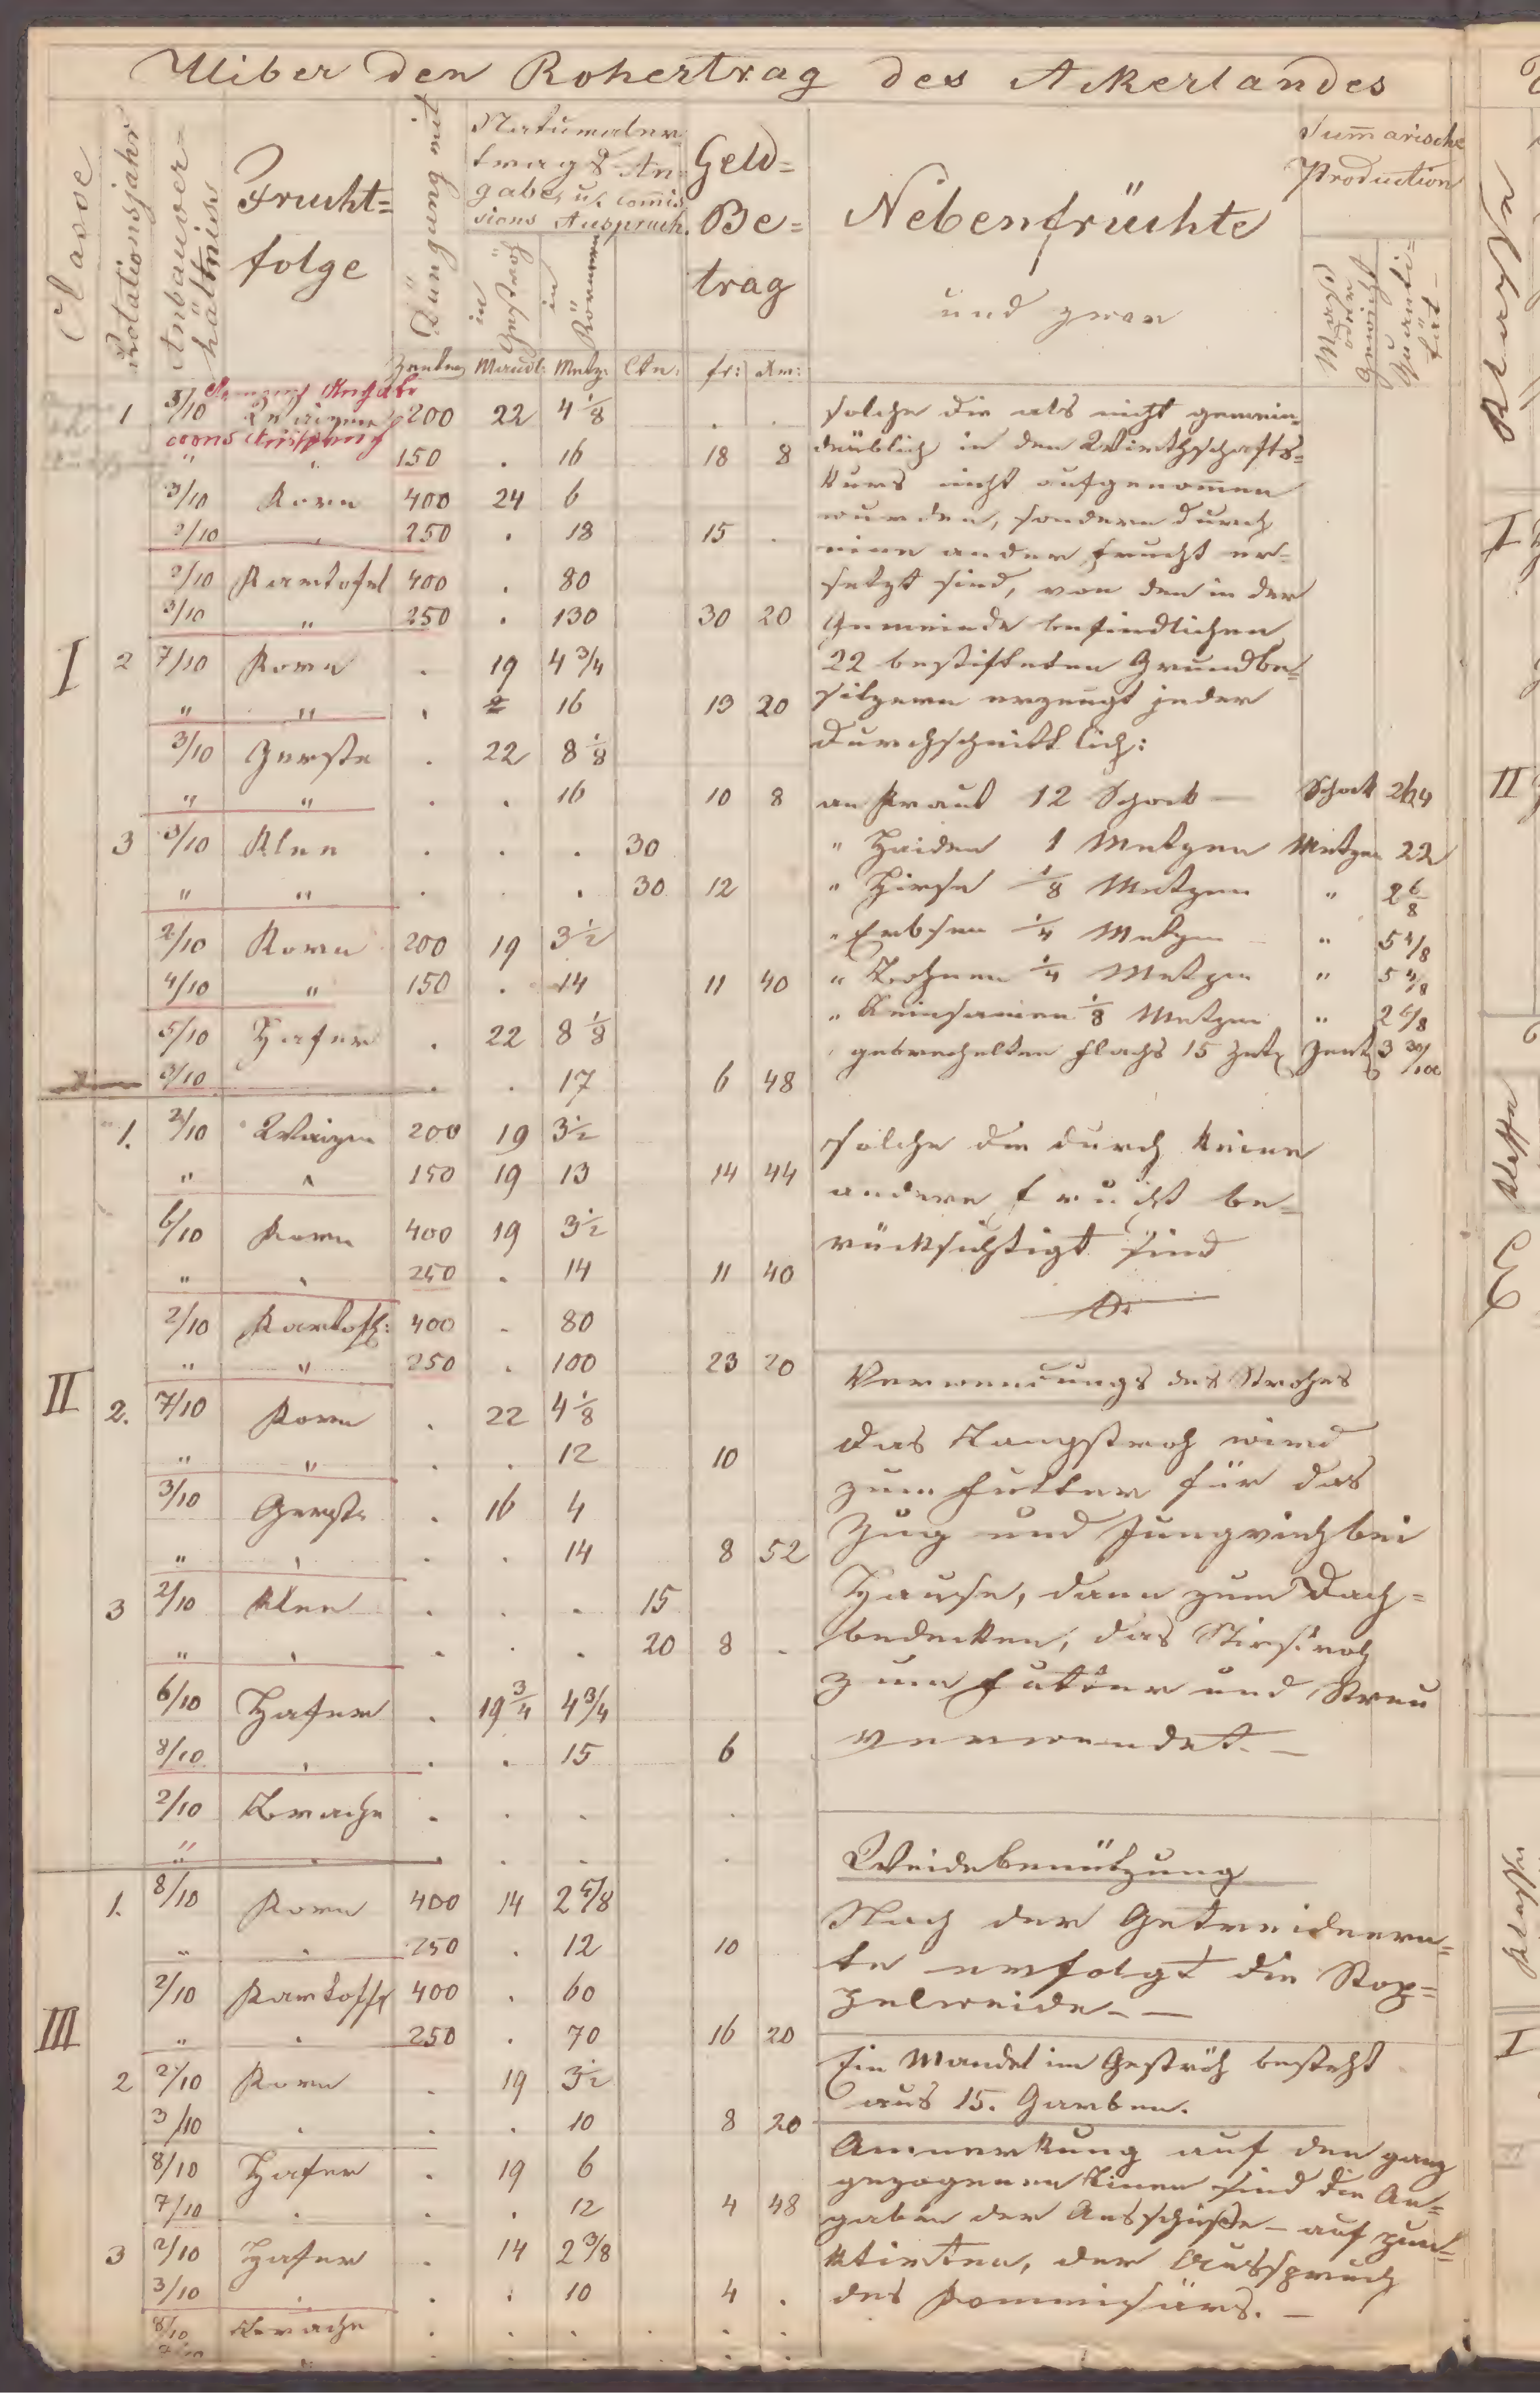 Uiber den Rohertrag des Ackerlandes
Classe
Rotationsjahr
Anbauver=
hältniss
Frucht=
folge
Düngung mit
Naturaler
trags-An=
gabe, u. Comis
sions Ausspruch.
in Geströh
in Körnern
Geld=
Be=
trag
Nebenfrüchte
und zwar
Summarische
Production
Mass oder Gewicht
Quanti=
tät
Zentner Mandl: Metz: Ctn: fr: Xr:
I
1 5/10 Waizen 200 22 4 1/8 . .
" " 150 . 16 18 8
3/10 Korn 400 24 6
2/10 " 250 . 18 15 .
2/10 Kartofel 400 . 80
3/10 " 250 . 130 30 20
2 7/10 Korn . 19 4 3/4
" " . 16 13 20
3/10 Gerste . 22 8 1/8
" " . . 16 10 8
3 3/10 Klee . . . 30
" " . . . 30 12
2/10 Korn 200 19 3 1/2
4/10 " 150 . 14 11 40
5/10 Hafer . 22 8 1/8
3/10 . . 17 6 48
II
1. 2/10 Waizen 200 19 3 1/2
" " 150 19 13 14 44
6/10 Korn 400 19 3 1/2
" " 250 . 14 11 40
2/10 Kartoff: 400 . 80
" " 250 . 100 23 20
2. 7/10 Korn . 22 4 1/8
" " . . 12 10
3/10 Gerste . 16 4
" " . . 14 8 52
3 2/10 Klee . . . 15
" " . . . 20 8 .
6/10 Hafer . 19 3/4 4 3/4
8/10 " . . 15 6
2/10 Brache . . . .
" " . . . .
III
1. 8/10 Korn 400 14 2 5/8
" " 250 . 12 10
2/10 Kartoff 400 . 60
" " 250 . 70 16 20
2 2/10 Korn . 19 3 1/2
3/10 " . . 10 8 20
8/10 Hafer . 19 6
7/10 " . . 12 4 48
3 2/10 Hafer . 14 2 3/8
3/10 " . . 10 4 .
8/10 Brache . . . . . .
solche die als nicht gemein=
deüblich in den Wirthschafts=
kurs nicht aufgenommen
wurden, sondern durch
eine andere Frucht er=
setzt sind, von den in der
Gemeinde befindlichen
22 bestifteten Grundbe=
sitzern erzeugt jeder
durchschnittlich:
an Kraut 12 Schock — Schock 264
" Haiden 1 Metzen Metzen 22
" Hirse 1/8 Metzen " 2 6/8
" Erbsen 1/4 Metzen " 5 4/8
" Bohnen 1/4 Metzen " 5 4/8
" Leinsamen 1/8 Metzen " 2 6/8
gebrechelten Flachs 15 Zent 3 30/100
solche die durch keine
andere Frucht be=
rücksichtigt sind
Verwendungs des Strohes
Das Langstroh wird
zum Futter für das
Zug und Jungvieh bei
Hause, dann zum Dach=
bedecken, das Wirstroh
zum Futter und Streu
verwendet. —
Weidebenützung
Nach der Getreideern=
te erfolgt die Stop=
pelweide. —
Ein Mandel im Geströh besteht
aus 15. Garben.
Anmerkung auf den ganz
gezogenen Linien sind die An=
gaben der Ausschüße — auf pun=
ktirten, der Ausspruch
des Kommissärs. —